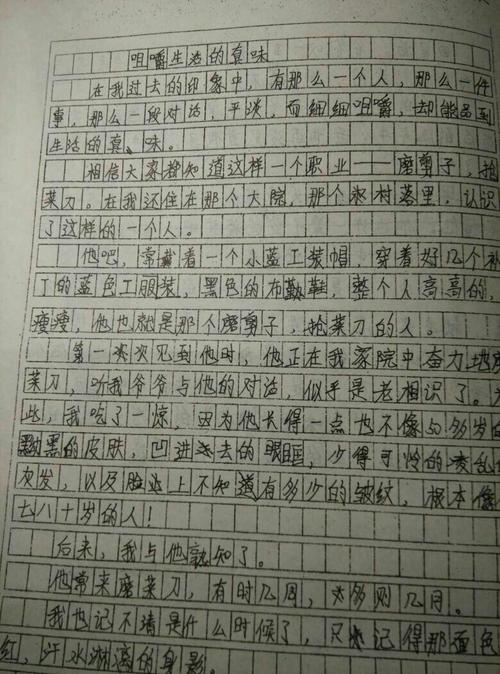 咀嚼生活的真味
在我过去的印象中，有那么一个人，那么一件
事，那么一段对话，平淡，而细细咀嚼，却能品到
生活的真、味。
相信大家都知道这样一个职业——磨剪子，抢
菜刀。在我还住在那个大院，那个村落里，认识
了这样的一个人。
他吧，常戴着一个小蓝工装帽，穿着好几个补
丁的蓝色工服装，黑色的布鞋，整个人高高的，
瘦瘦，他也就是那个磨剪子，抢菜刀的人。
第一次见到他时，他正在我家院中奋力地
菜刀，听我爷爷与他的对话，似乎是老相识了。
此，我吃了一惊，因为他长得一点也不像60多岁的
黝黑的皮肤，凹进去的眼眶，少得可怜的凌乱
灰发，以及脸上不知道有多少的皱纹，根本像
七八十岁的人！
后来，我与他熟知了。
他常来磨菜刀，有时几周，多则几月。
我也记不清是什么时候了，只记得那面色
红，汗水淋漓的身影。